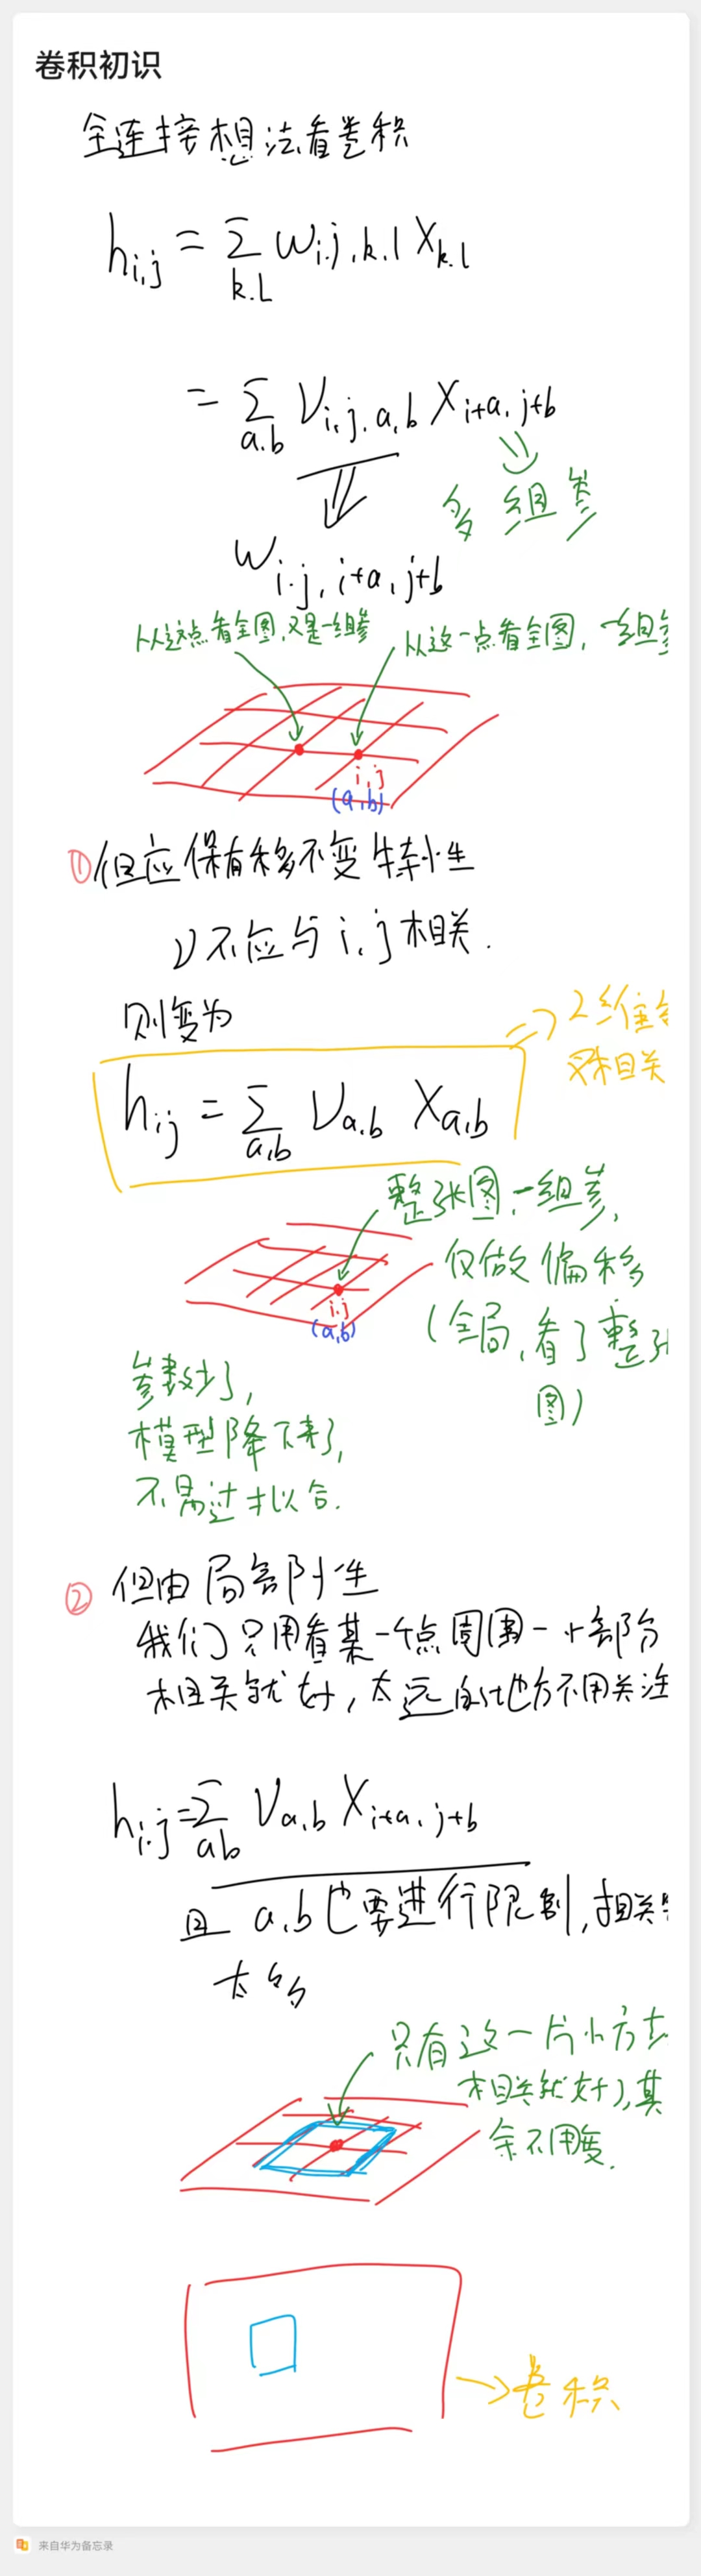 卷积初识
全连接想法看卷积
h i,j = Σ k.l w i.j.k.l x k.l
= Σ a.b V i,j.a,b X i+a.j+b
多组参
w i.j,i+a,j+b
从这点看全图,又是一组参
从这一点看全图,一组参
i,j
(a,b)
①但应保有移不变特性
V不应与i.j相关.
则变为
2维
叉相关
h ij = Σ a,b V a,b X a,b
整张图一组参,
仅做偏移
i.j
(a,b)
(全局,看了整张
图)
参数少了,
模型降下来了,
不易过拟合.
② 但由局部性
我们只用看某一个点周围一小部分
相关就好,太远的地方不用关注
h i.j = Σ ab V a,b X i+a.j+b
且 a.b也要进行限制,相关
太多
只有这一片小方
相关就好了,其
余不用
卷积
来自华为备忘录